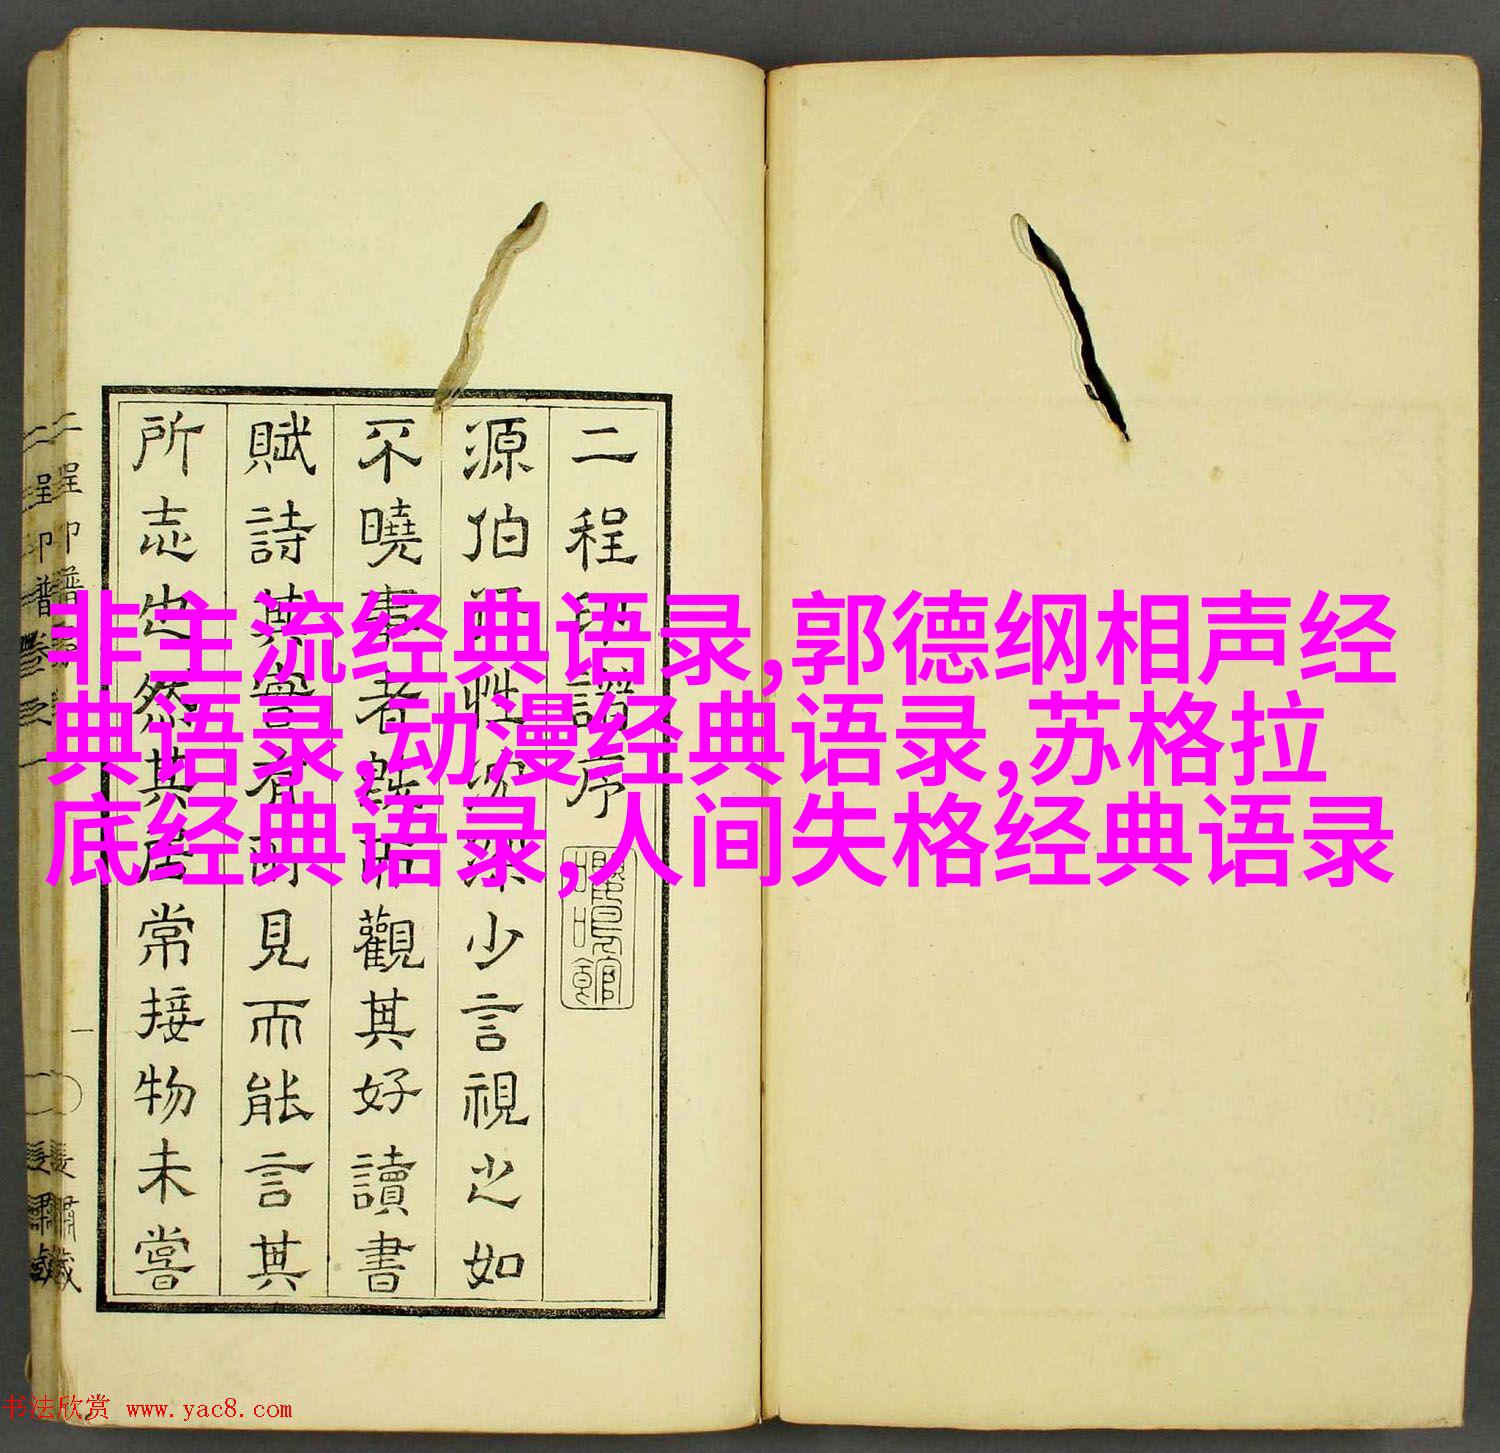 非主流经典语录,郭德纲相声经
典语录,动漫经典语录,苏格拉
底经典语录,人间失格经典语录
二程印譜序
源伯 性 少言視之如
不曉事者 觀其好讀書
賦詩其 有所見而能言其
所志也然其居常接物未嘗
二程印譜
书法欣赏 www.yac8.com